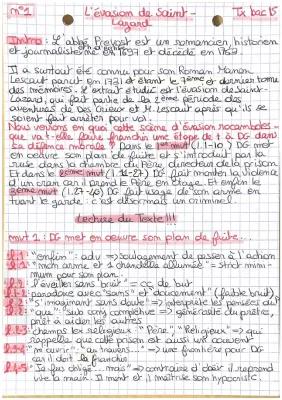 n°1 L'évasion de Saint- Tx bac 15
Lazard
Intro : L'abbé Prévost est un romancier, historien
et journaliste né en 1697 et décédé en 1763.
Il a surtout été connu pour son Roman Manon
Lescaut paru en 1731 et étant le 7ème et dernier tome
des mémoires. L'extrait étudié est l'évasion de Saint-
Lazard, qui fait partie de la 2ème période des
aventures de Des Grieux et M. Lescaut après qu'ils se
soient fait arrêter pour vol.
Nous verrons en quoi cette scène d'évasion rocambolesque
va-t-elle faire franchir une étape de + à DG dans
sa déffence morale ? Dans le 1er mvt (l.1-10) DG met
en oeuvre son plan de fuite et s'introduit par la
ruse dans la chambre du Père, directeur de la prison
Et dans le 2ème mvt (l.11-27) DG fait monter la violence
d'un cran car il prend le Père en otage. Et enfin le
3ème mvt (l.27-40) DG fait usage de son arme en
tuant le garde : c'est désormais un criminel.
Lecture du Texte !!!
mvt 1 : DG met en oeuvre son plan de fuite...
l.1 : "enfin" : adv => soulagement de passer à l'action
l.1 : "mon arme et 1 chandelle allumée" = strict mini-
mum pour son plan.
l.2 : "l'éveiller sans bruit" = cc de but
l.2 : paradoxe avec "sans" et "doucement" (faible bruit)
l.2 : "s'imaginant sans doute" => interprète les pensées du P
l.2 : "que" : sub conj complétive => générosité du prêtre,
prêt à aider les autres
l.3 : champs lex religieux "Père", "Religieux" => qui
rappelle que cette prison est aussi un couvent
l.3-4 : "m'ouvrir", "au travers..." => une frontière pour DG
car il doit la franchir
l.4-5 : "Je fus obligé... mais" => contraire d'obéir il reprend
vite la main. Il ment et il maîtrise son hypocrisie.